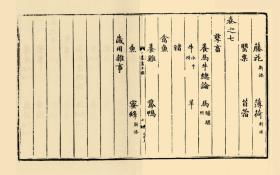 藤花 新添 薄荷 新添
罌粟 苜蓿
卷之七
孳畜
養馬牛總論 馬 驢騾
牛 水牛 羊
猪
禽魚
養雞 鵞鴨
魚 蜜蜂 新添
歲用雜事